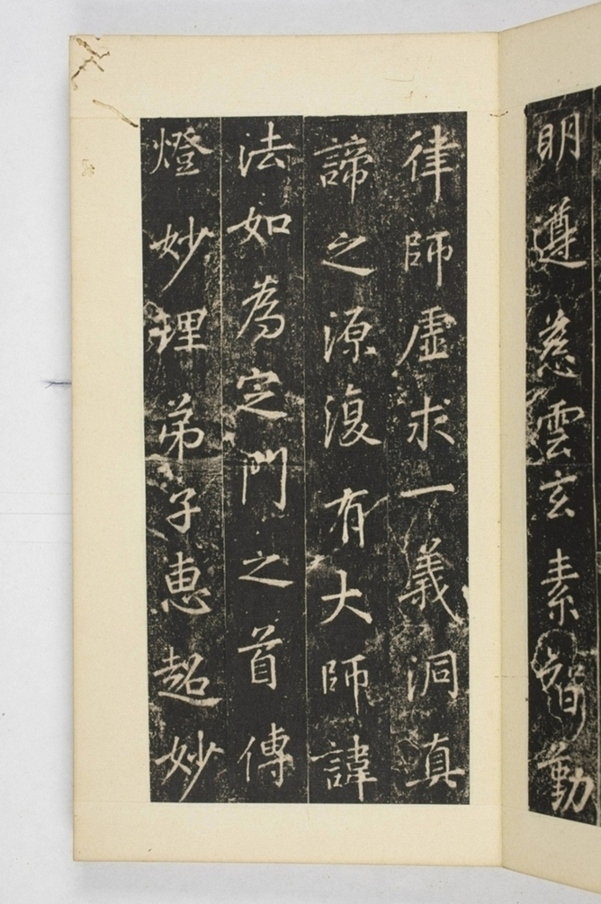 明遵慈雲玄素智勤
律師虛求一義洞真
諦之源復有大師諱
法如為定門之首傳
燈妙理弟子惠超妙